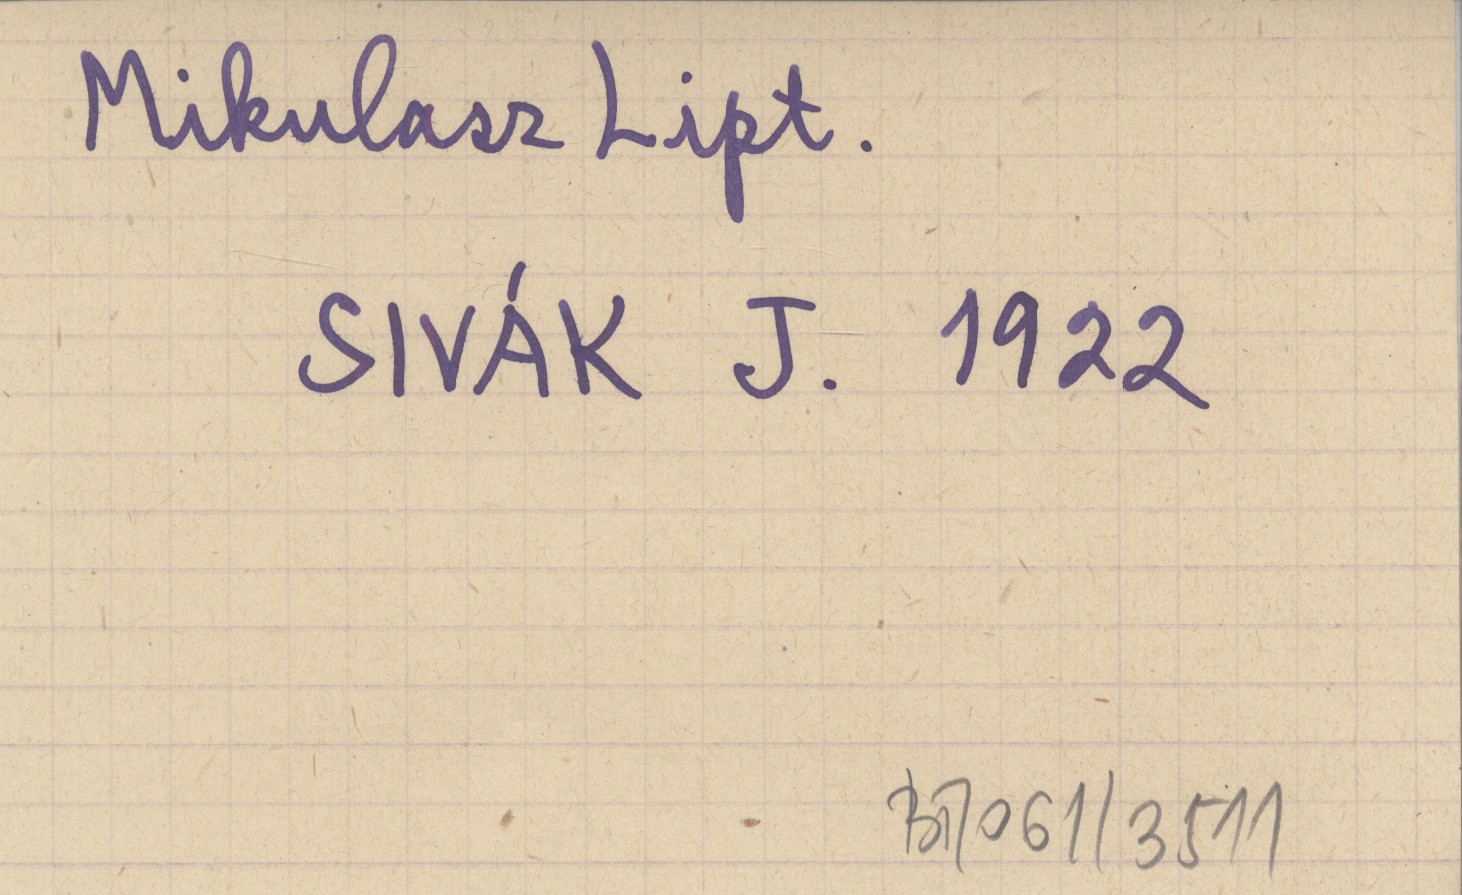 Mikulasz Lipt.
SIVÁK J. 1922
BП/061/3511